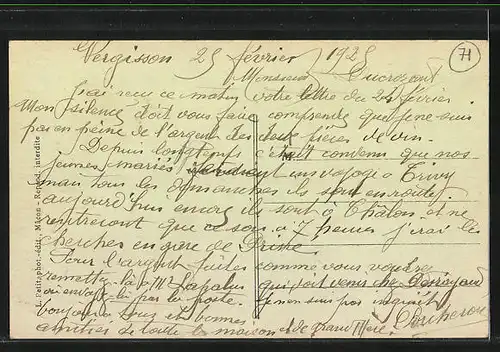 71
Vergisson 25 février 1925
Monsieur Ducrozont
J'ai reçu ce matin votre lettre du 24 février.
Mon silence doit vous faire comprendre que je ne suis
pas en peine de l'argent des deux pièces de vin.
Depuis longtemps c'était convenu que nos
jeunes mariés un voyage à
tous les dimanches ils sont en route
aujourd'hui encore ils sont à Châlon, et ne
rentreront que ce soir à 7 heures j'irai les
chercher en gare de Prissé.
Pour l'argent faites comme vous voudrez
remettez-là à M Lapalus qui doit venir chez
ou envoyez-là par la poste. je n'en suis pas inquiet
bonjour à tous et bonnes
amitiés de toute la maison et de grand Mère.
L. Ferlitaphot.-édit., Mâcon - Reprod. interdite